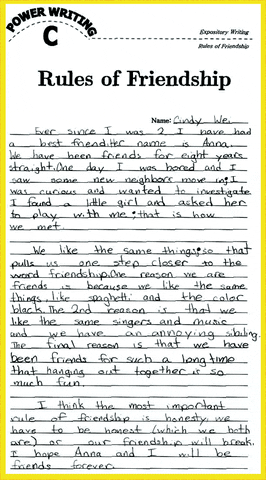 POWER WRITING
C
Expository Writing
Rules of Friendship
Rules of Friendship
Name: Cindy Wei
Ever since I was 2 I have had
a best friend.Her name is Anna.
We have been friends for eight years
straight.One day I was bored and I
saw some new neighbors move in, I
was curious and wanted to investigate.
I found a little girl and asked her
to play with me; that is how
we met.
We like the same things; so that
pulls us one step closer to the
word friendship.One reason we are
friends is because we like the same
things, like spaghetti and the color
black. The 2nd reason is that we
like the same singers and music
and we have an annoying sibling.
The final reason is that we have
been friends for such a long time
that hanging out together is so
much fun.
I think the most important
rule of friendship is honesty, we
have to be honest (which we both
are) or our friendship will break.
I hope Anna and I will be
friends forever.